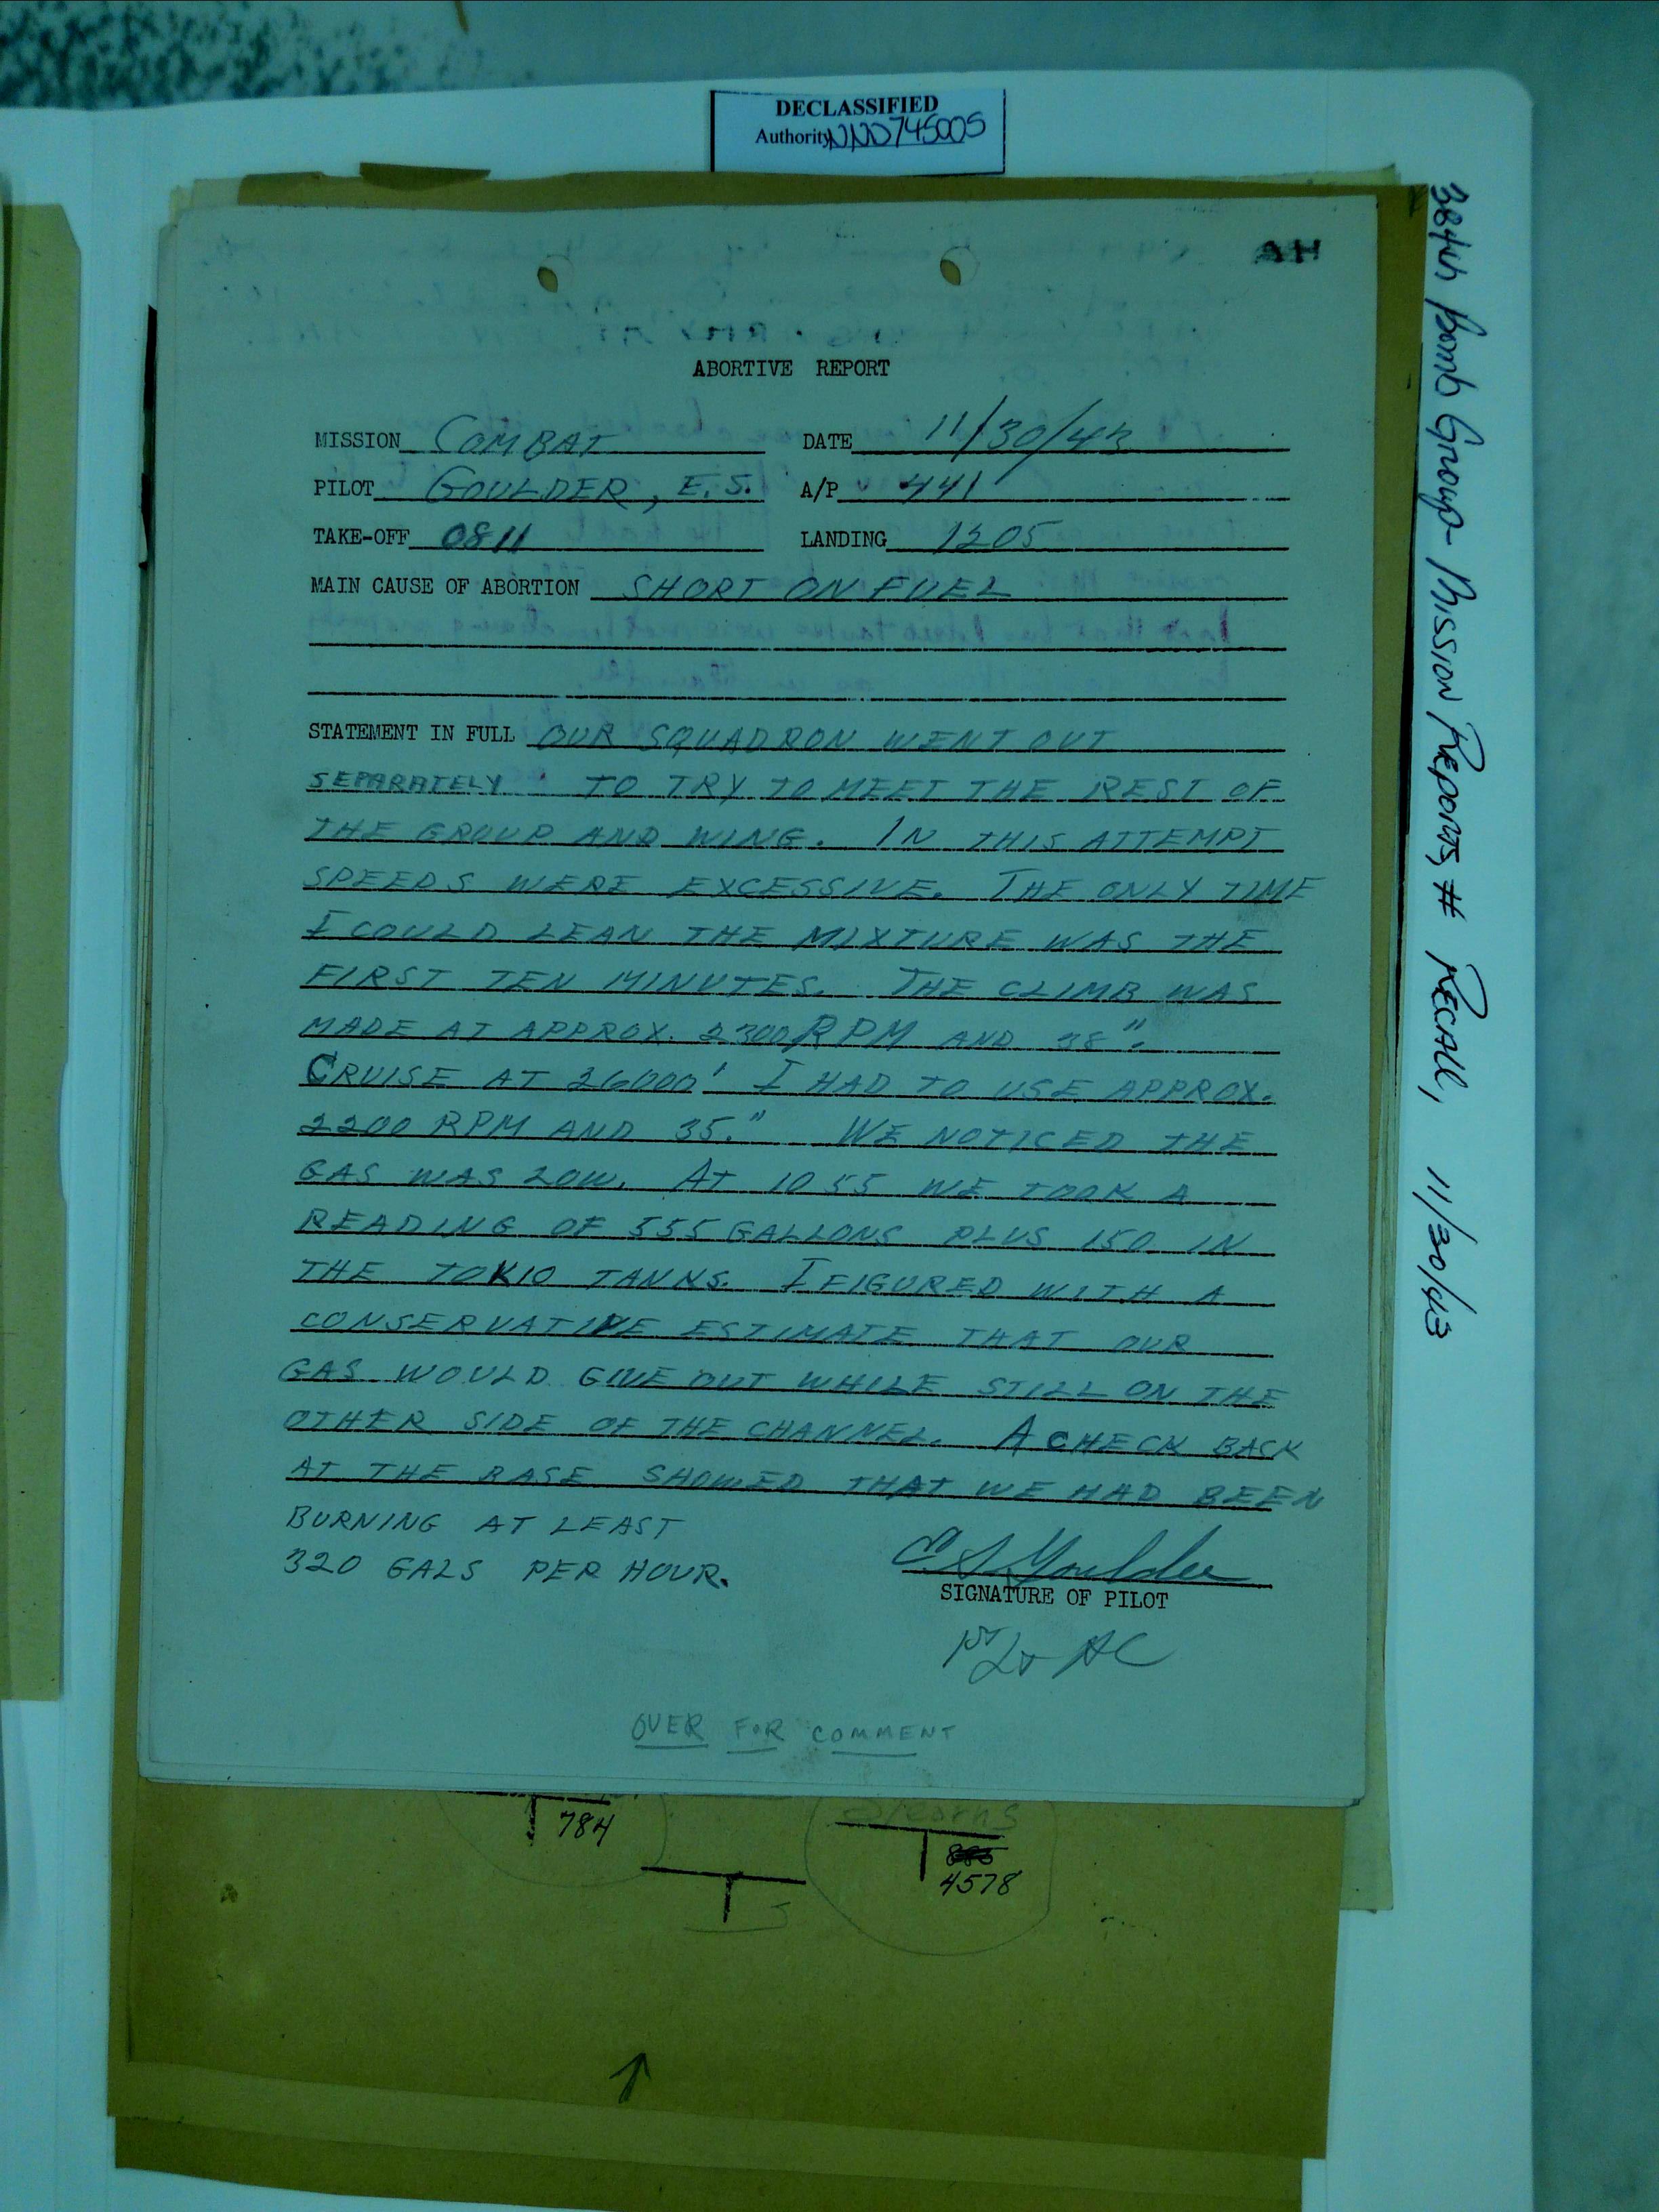 DECLASSIFIED
Authority NND745005
384th Bomb Group - Mission Reports, # Recall, 11/30/43
AH
ABORTIVE REPORT
MISSION COMBAT DATE 11/30/43
PILOT GOULDER, E.S. A/P 441
TAKE-OFF 0811 LANDING 1205
MAIN CAUSE OF ABORTION SHORT ON FUEL
STATEMENT IN FULL OUR SQUADRON WENT OUT
SEPARATELY TO TRY TO MEET THE REST OF
THE GROUP AND WING. IN THIS ATTEMPT
SPEEDS WERE EXCESSIVE. THE ONLY TIME
I COULD LEAN THE MIXTURE WAS THE
FIRST TEN MINUTES. THE CLIMB WAS
MADE AT APPROX. 2300 RPM AND 38".
CRUISE AT 26000' I HAD TO USE APPROX.
2200 RPM AND 35." WE NOTICED THE
GAS WAS LOW. AT 1055 WE TOOK A
READING OF 555 GALLONS PLUS 150 IN
THE TOKIO TANKS. I FIGURED WITH A
CONSERVATIVE ESTIMATE THAT OUR
GAS WOULD GIVE OUT WHILE STILL ON THE
OTHER SIDE OF THE CHANNEL. A CHECK BACK
AT THE BASE SHOWED THAT WE HAD BEEN
BURNING AT LEAST
320 GALS PER HOUR.
E S Goulder
SIGNATURE OF PILOT
1st Lt AC
OVER FOR COMMENT
784
Stearns
4578